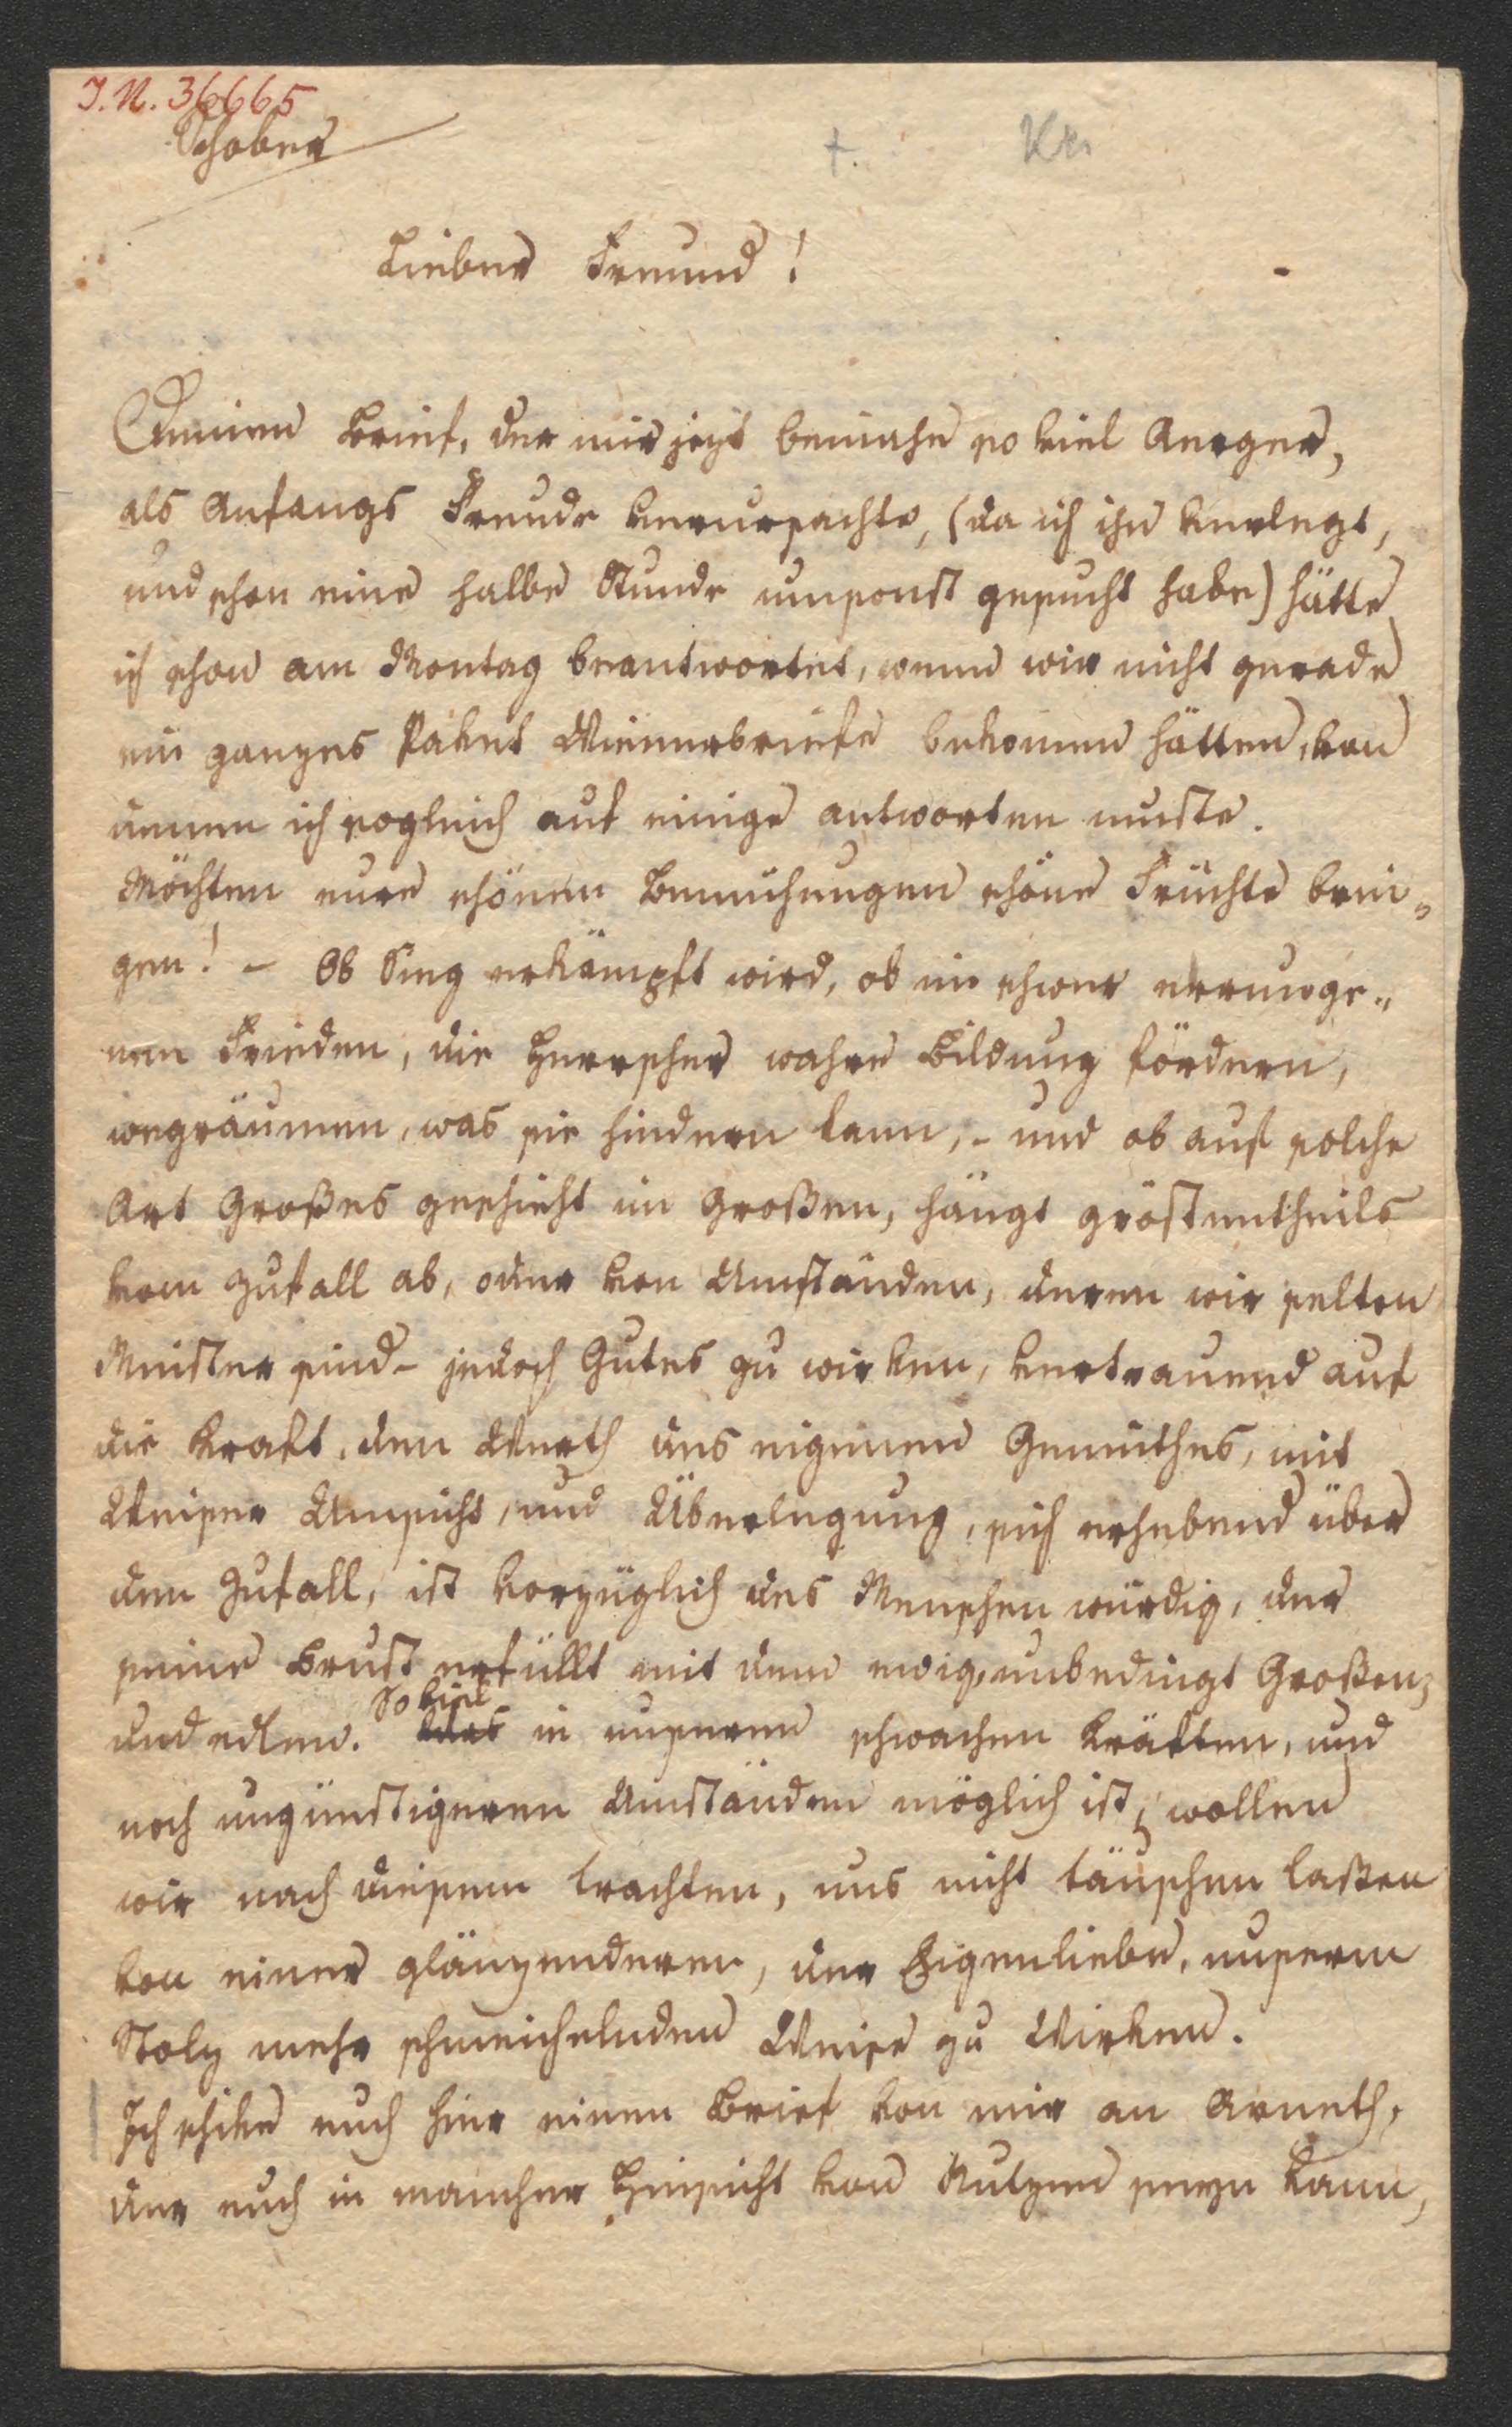 I.N. 36665
Schober
+. Kr
Lieber Freund!
Deinen Brief, der mir jezt beinahe so viel Aerger,
als Anfangs Freude verursachte, (da ich ihn verlegt,
und schon eine halbe Stunde umsonst gesucht habe) hätte
ich schon am Montag beantwortet, wenn wir nicht gerade
ein ganzes Paket Wienerbriefe bekomen hätten, von
denen ich sogleich auf einige antworten muste.
Möchten eure schönen Bemühungen schöne Früchte brin=
gen! – Ob Sieg erkämpft wird, ob im schwer errunge=
nen Frieden, die Herrscher wahre Bildung fördern,
wegräumen, was sie hindern kann, – und ob auf solche
Art Großes geschieht im Großen, hängt gröstentheils
vom Zufall ab, oder von Umständen, deren wir selten
Meister sind – jedoch Gutes zu wirken, vertrauend auf
die Kraft, den Werth des eigenen Gemüthes, mit
Weiser Umsicht, und Überlegung, sich erhebend über
den Zufall, ist vorzüglich des Menschen würdig, der
seine Brust erfüllt mit dem ewig, unbedingt Großen,
und edlen. So viel Was in unseren schwachen Kräften, und
noch ungünstigeren Umständen möglich ist, wollen
wir nach diesem trachten, uns nicht täuschen laßen
von einer glänzenderen, der Eigenliebe, unserm
Stolz mehr schmeichelnden Weise zu Wirken.
Ich schike euch hier einen Brief von mir an Arneth,
der euch in mancher Hinsicht von Nutzen seyn kann,